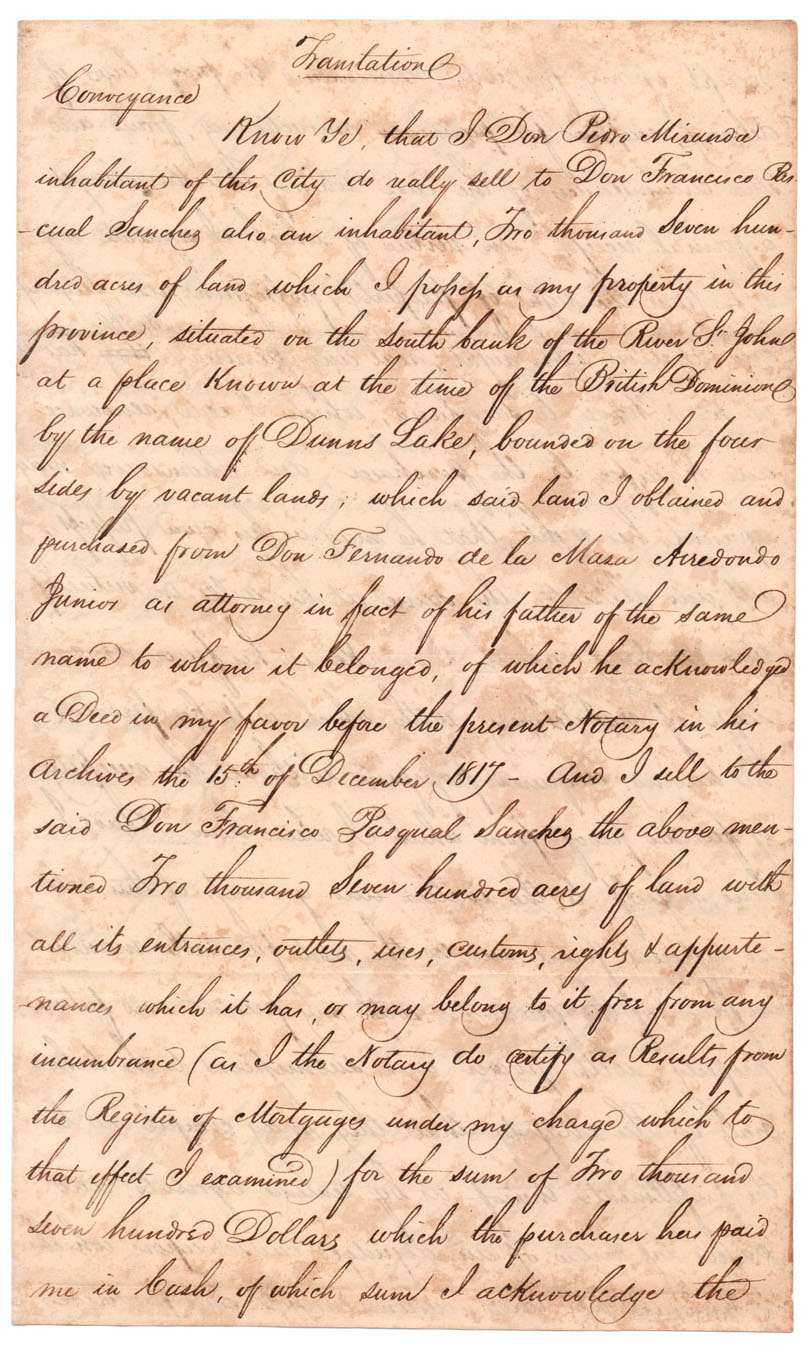 Translation
Conveyance
Know Ye, that I Don Pedro Miranda
inhabitant of this City do really sell to Don Francisco Pas-
-cual Sanchez also an inhabitant, Two thousand Seven hun-
dred acres of land which I possess as my property in this
province, situated on the south bank of the River St John
at a place Known at the time of the British Dominion
by the name of Dunns Lake, bounded on the four
sides by vacant lands; which said land I obtained and
purchased from Don Fernando de la Maza Arredondo
Junior as attorney in fact of his father of the same
name to whom it belonged, of which he acknowledged
a Deed in my favor before the present Notary in his
Archives the 15th of December 1817 - And I sell to the
said Don Francisco Pasqual Sanchez the above men-
tioned Two thousand Seven hundred acres of land with
all its entrances, outlets, uses, customs, rights & appurte-
-nances which it has, or may belong to it free from any
incumbrance (as I the Notary do certify as Results from
the Register of Mortgages under my charge which to
that effect I examined) for the sum of Two thousand
seven hundred Dollars which the purchaser has paid
me in Cash, of which sum I acknowledge the